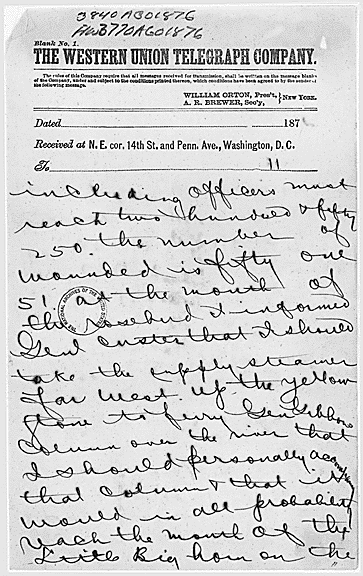 3840 AGO 1876
AWB770AGO1876
Blank No. 1.
THE WESTERN UNION TELEGRAPH COMPANY.
The rules of this Company require that all messages received for transmission, shall be written on the message blanks
of the Company, under and subject to the conditions printed thereon, which conditions have been agreed to by the sender of
the following message.
WILLIAM ORTON, Pres't, } NEW YORK.
A. R. BREWER, Sec'y,
Dated 187
Received at N. E. cor. 14th St. and Penn. Ave., Washington, D. C.
To 11
including officers must
reach two hundred & fifty
250. the number of
wounded is fifty one
51 at the mouth of
the rosebud I informed
Genl Custer that I should
take the supply steamer
far west up the yellow
stone to ferry Gen Gibbons
column over the river that
I should personally accompany
that column & that it
would in all probability
reach the mouth of the
Little Big horn on the